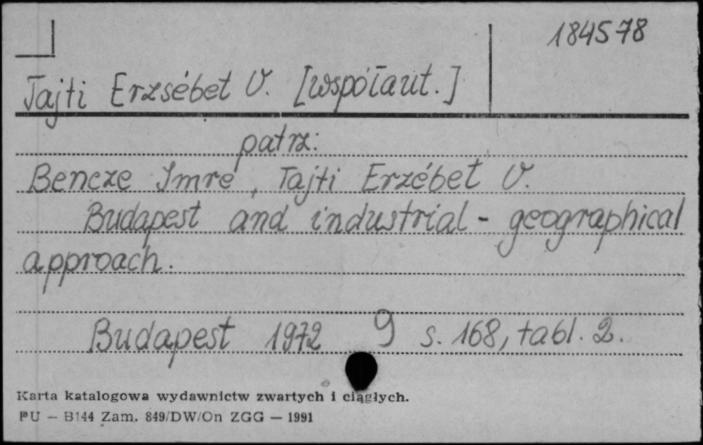 184578
Tajti Erzsébet V. [współaut.]
patrz:
Bencze Imre, Tajti Erzébet V.
Budapest and industrial - geographical
approach.
Budapest 1972 9 s. 168, tabl. 2.
Karta katalogowa wydawnictw zwartych i ciągłych.
PU — B144 Zam. 849/DW/On ZGG — 1991